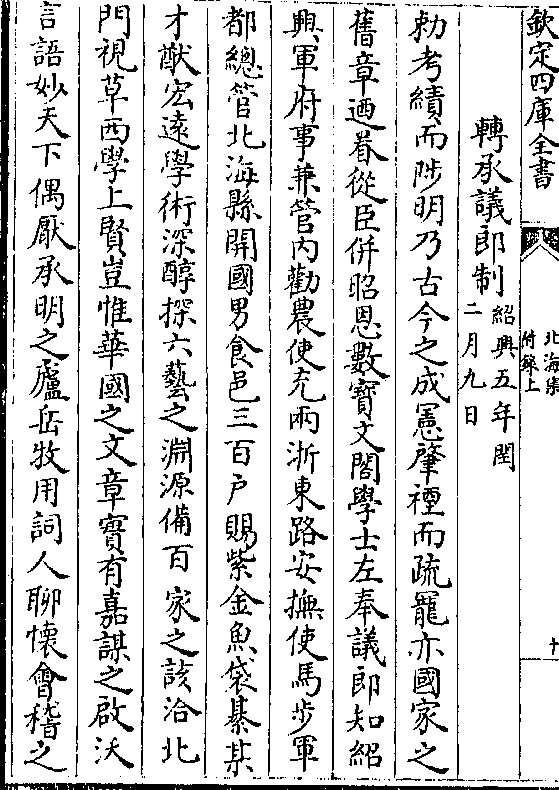 欽定四庫全書
北海集
附錄上
十
轉承議郎制
紹興五年閏
二月九日
勅考績而陟明乃古今之成憲肇禋而疏寵亦國家之
舊章迺眷從臣併昭恩數寳文閣學士左奉議郎知紹
興軍府事兼管内勸農使充兩浙東路安撫使馬步軍
都總管北海縣開國男食邑三百户賜紫金魚袋綦某
才猷宏逺學術深醇探六藝之淵源備百家之該洽北
門視草西學上賢豈惟華國之文章實有嘉謀之啟沃
言語妙天下偶厭承明之廬岳牧用詞人聊懷會稽之